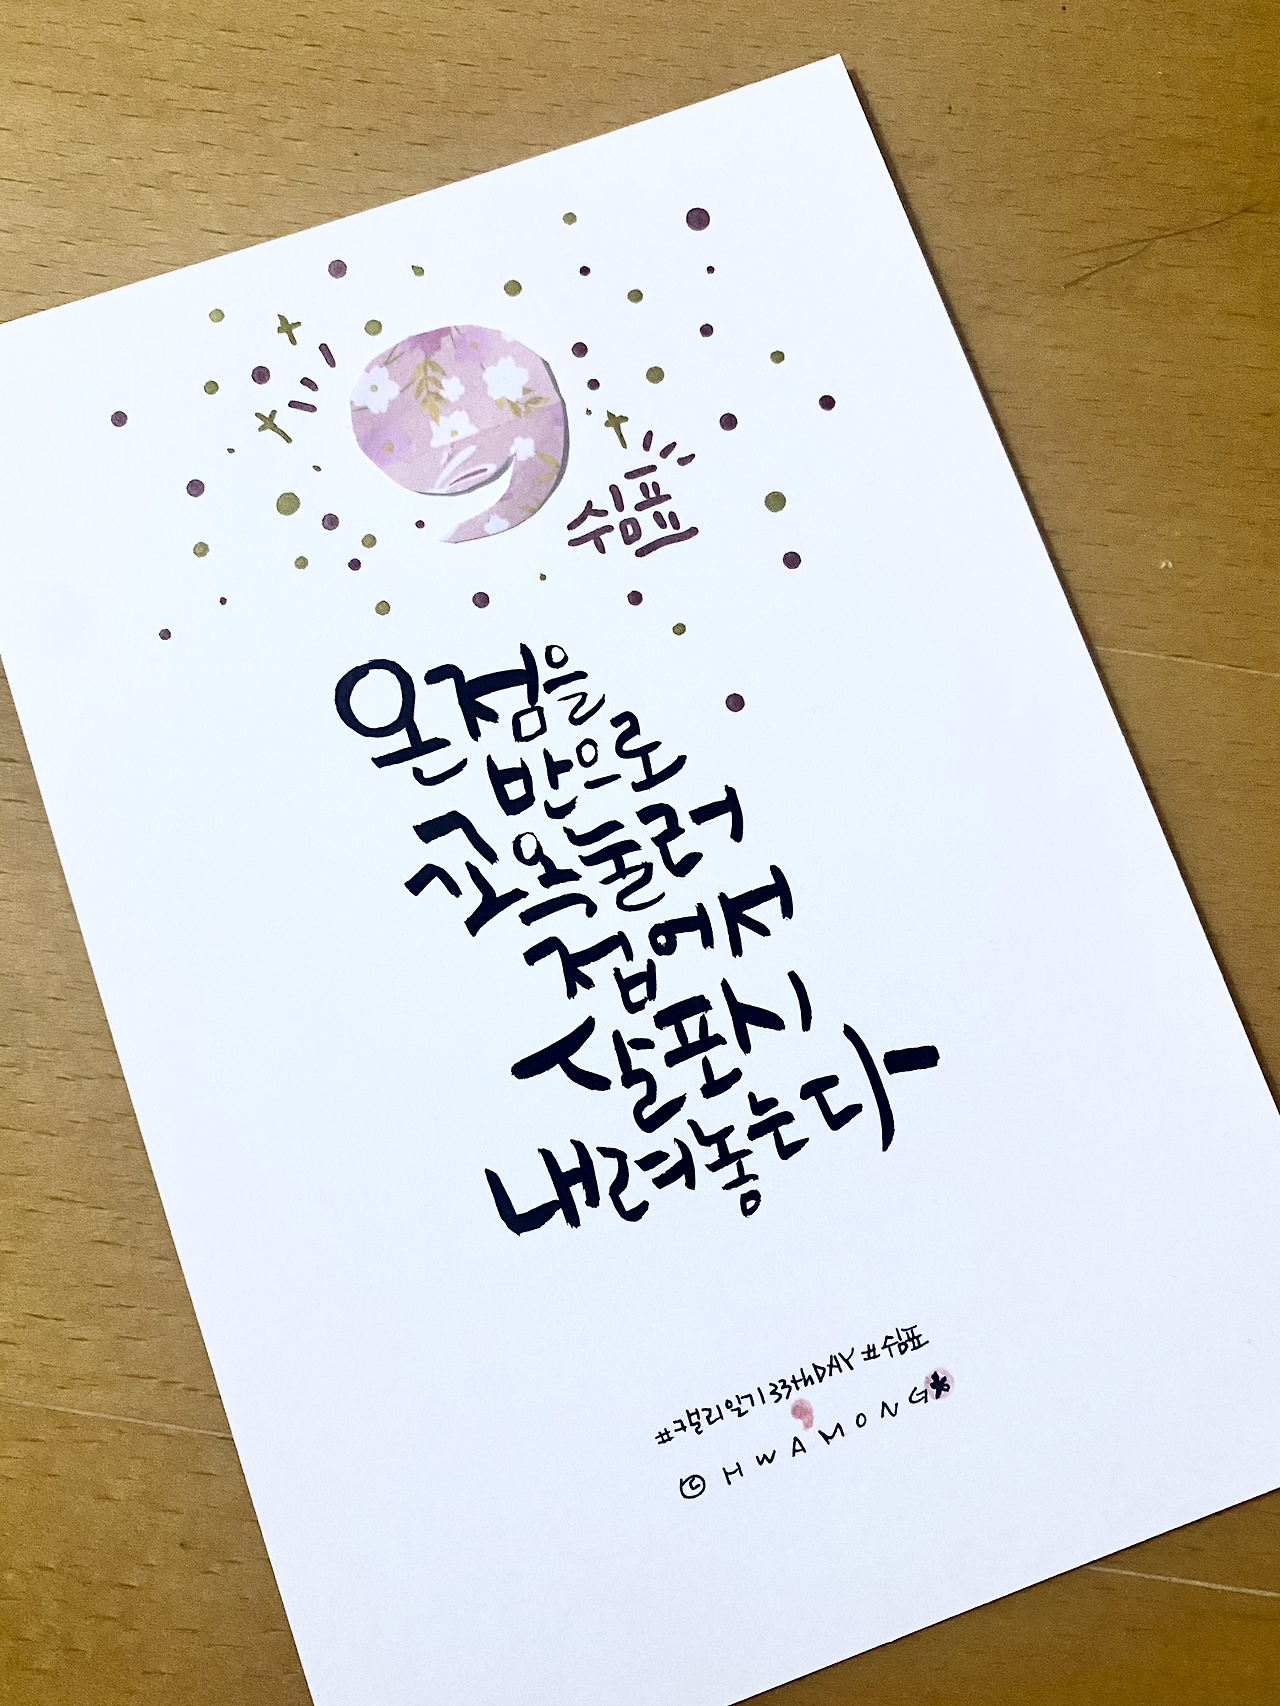 쉼표
온점을
반으로
꼬옥눌러
접에서
살포시
내려놓는다-
#캘리일기33thDAY #쉼표
© HWAMONG*